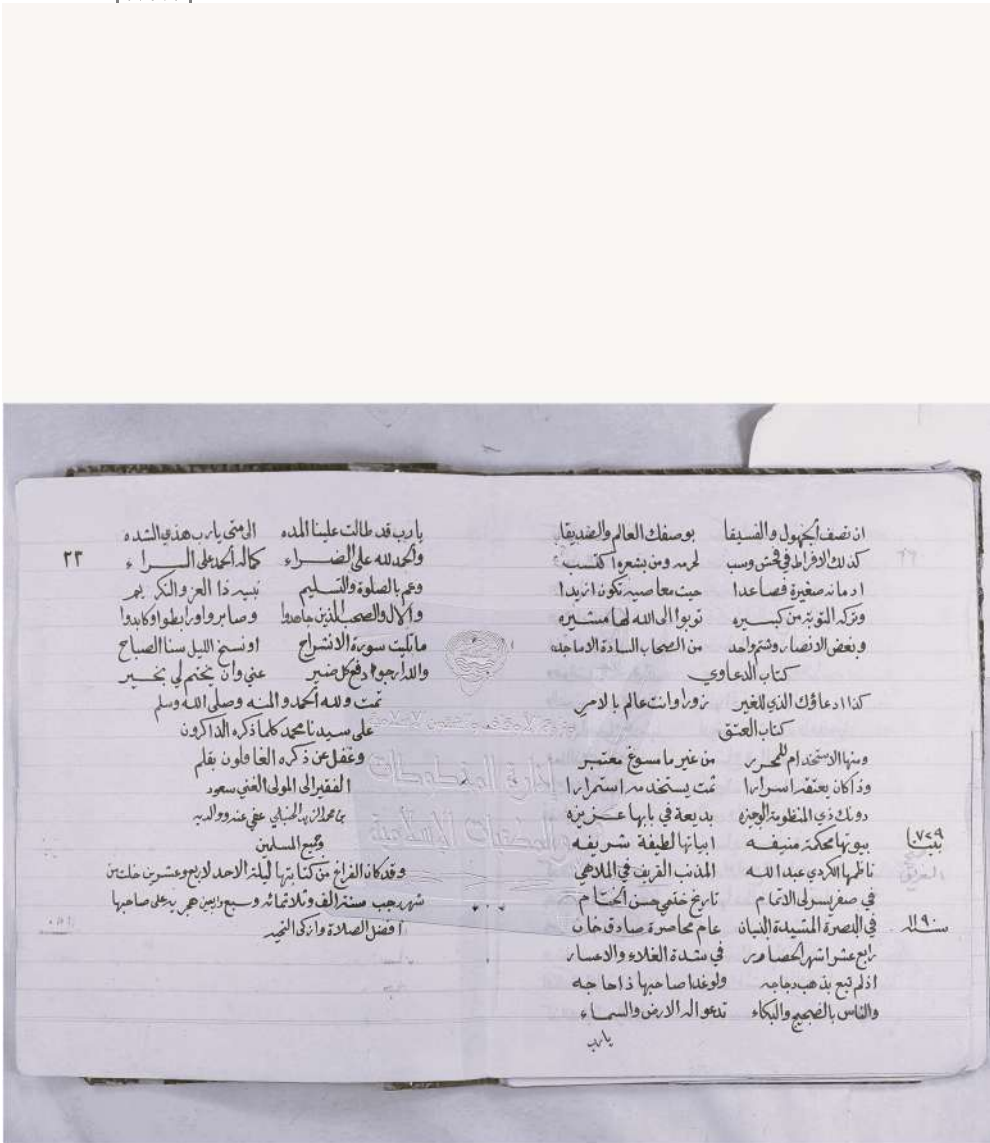 ان تصف الجهول والفسيقا بوصفك العالم والصديقا
كذلك الافراط في فحش وسب لحرمه ومن بشعره اكتسب
ادمانه صغيرة فصاعدا حيث معاصيه تكون ازيدا
وتركه التوبة من كبيره توبوا الى الله لها مشيره
وبغض الانصار وشتم واحد من الصحاب السادة الاماجد
كتاب الدعاوي
كذا ادعاؤك الذي للغير زورا وانت عالم بالامر
كتاب العتق
ومنها الاستخدام للمحرر من غير ما مسوغ معتبر
وذا كان يعتقه اسرارا ثمت يستخدمه استمرارا
دونك ذي المنظومة الوجيزه بديعة في بابها عزيزه
بيوتها محكمة منيفه ابياتها لطيفة شريفه
٧٢٩ بيتا
ناظمها الكردي عبد الله المذنب الغريق في الملاهي
في صفر يسر لي الاتمام تاريخ ختمي حسن الختام
في البصرة المشيدة البنيان عام محاصرة صادق خان
سنة ١١٩٠
رابع عشر اشهر الحصار في شدة الغلاء والاعسار
اذ لم تبع بذهب دجاجه ولو غدا صاحبها ذا حاجه
والناس بالضجيج والبكاء تدعو اله الارض والسماء
يارب
٢٣
يارب قد طالت علينا المده الى متى يارب هذي الشده
والحمد لله على الضراء كماله الحمد على السراء
وعم بالصلوة والتسليم نبيه ذا العز والتكريم
والآل والصحب الذين جاهدوا وصابروا ورابطوا وكابدوا
ما تليت سورة الانشراح او نسخ الليل سنا الصباح
والله ارجو دفع كل ضير عني وان يختم لي بخير
تمت ولله الحمد والمنه وصلى الله وسلم
على سيدنا محمد كلما ذكره الذاكرون
وغفل عن ذكره الغافلون بقلم
الفقير الى المولى الغني سعود
بن محمد الزيد الحنبلي عفي عنه ووالديه
وجميع المسلمين
وقد كان الفراغ من كتابتها ليلة الاحد لاربع وعشرين خلت من
شهر رجب سنة الف وثلاثمائه وسبع واربعين هجريه على صاحبها
افضل الصلاة وازكى التحيه
إدارة المخطوطات
والمكتبات الإسلامية